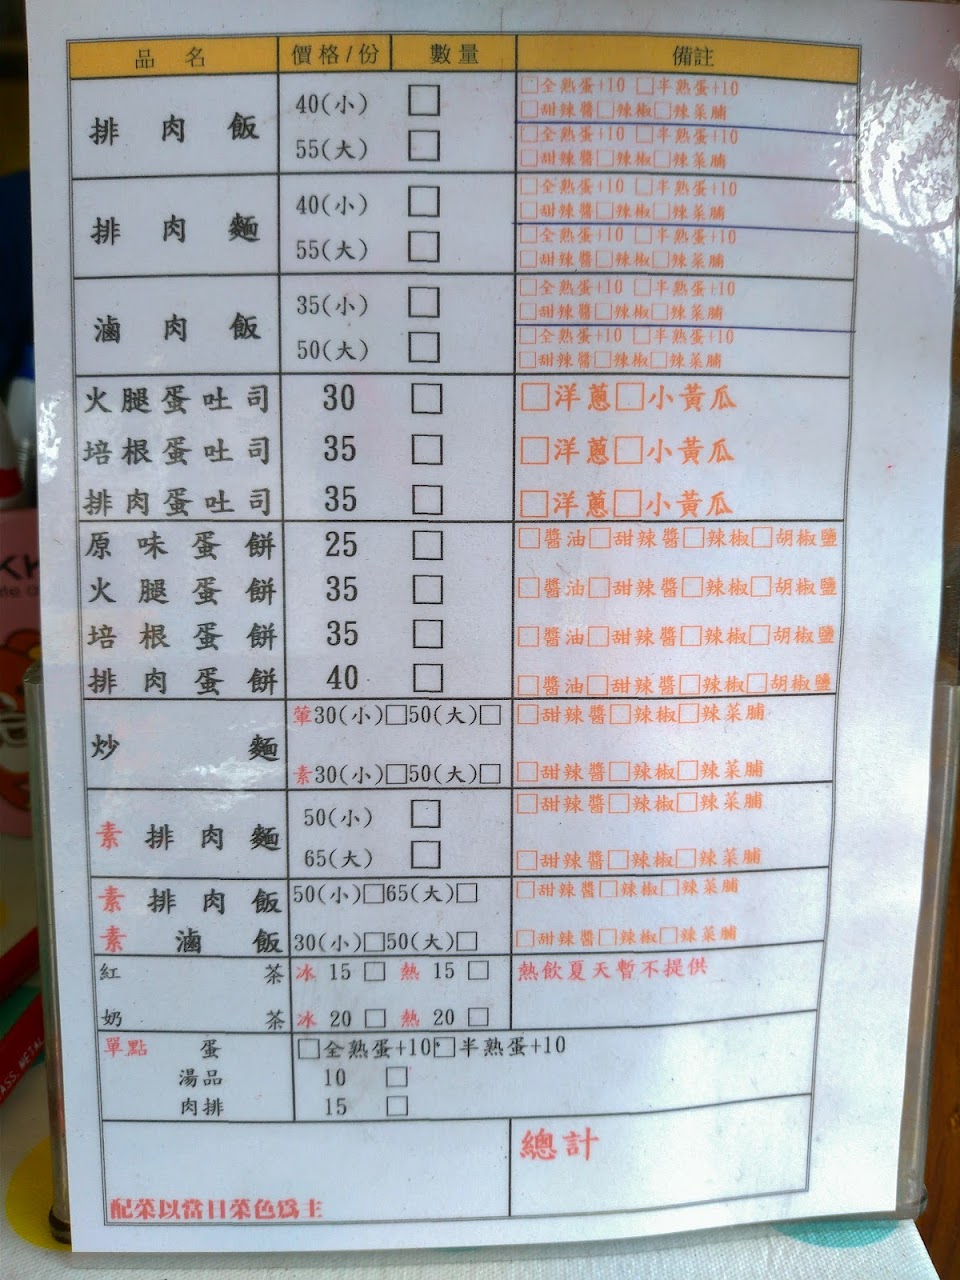 品名 價格/份 數量 備註
排肉飯 40(小) □ □全熟蛋+10 □半熟蛋+10
□甜辣醬□辣椒□辣菜脯
55(大) □ □全熟蛋+10 □半熟蛋+10
□甜辣醬□辣椒□辣菜脯
排肉麵 40(小) □ □全熟蛋+10 □半熟蛋+10
□甜辣醬□辣椒□辣菜脯
55(大) □ □全熟蛋+10 □半熟蛋+10
□甜辣醬□辣椒□辣菜脯
滷肉飯 35(小) □ □全熟蛋+10 □半熟蛋+10
□甜辣醬□辣椒□辣菜脯
50(大) □ □全熟蛋+10 □半熟蛋+10
□甜辣醬□辣椒□辣菜脯
火腿蛋吐司 30 □ □洋蔥□小黃瓜
培根蛋吐司 35 □ □洋蔥□小黃瓜
排肉蛋吐司 35 □ □洋蔥□小黃瓜
原味蛋餅 25 □ □醬油□甜辣醬□辣椒□胡椒鹽
火腿蛋餅 35 □ □醬油□甜辣醬□辣椒□胡椒鹽
培根蛋餅 35 □ □醬油□甜辣醬□辣椒□胡椒鹽
排肉蛋餅 40 □ □醬油□甜辣醬□辣椒□胡椒鹽
炒麵 葷30(小)□50(大)□ □甜辣醬□辣椒□辣菜脯
素30(小)□50(大)□ □甜辣醬□辣椒□辣菜脯
素排肉麵 50(小) □ □甜辣醬□辣椒□辣菜脯
65(大) □ □甜辣醬□辣椒□辣菜脯
素排肉飯 50(小)□65(大)□ □甜辣醬□辣椒□辣菜脯
素滷飯 30(小)□50(大)□ □甜辣醬□辣椒□辣菜脯
紅茶 冰 15 □ 熱 15 □ 熱飲夏天暫不提供
奶茶 冰 20 □ 熱 20 □
單點 蛋 □全熟蛋+10□半熟蛋+10
湯品 10 □
肉排 15 □
總計
配菜以當日菜色為主